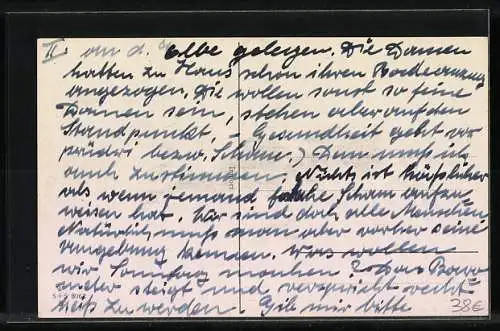 II. an d. Elbe gelegen. Die Damen
hatten zu Haus schon ihren Badeanzug
angezogen. Die wollen sonst so feine
Damen sein, stehen aber auf den
Standpunkt, - Gesundheit geht vor
prüderi bezw. Scham.) Dem muß ich
auch zustimmen. Nichts ist häßlicher
als wenn jemand falsche Scham aufzu-
weisen hat, hier sind doch alle Menschen
Natürlich muß man aber vorher seine
Umgebung kennen. Was wollen
wir Sonntag machen? Das Baro-
meter steigt und verspricht recht
heiß zu werden. Gib mir bitte
38€